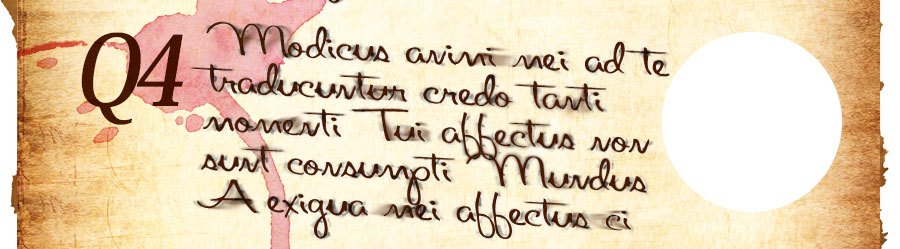 Q4
Modicus animi mei ad te
traducuntur credo tanti
momenti Tui affectus non
sunt consumpti Mundus
A exigua mei affectus ci